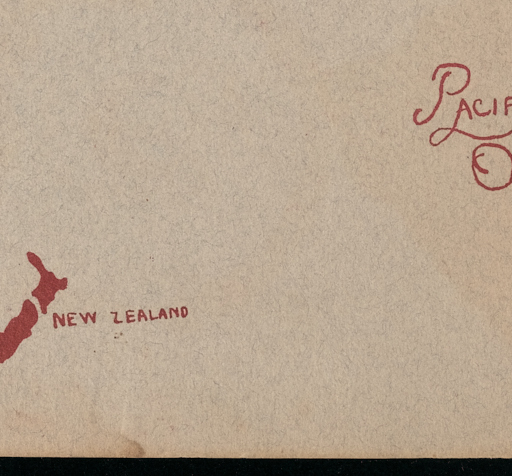 PACIF
O
NEW ZEALAND